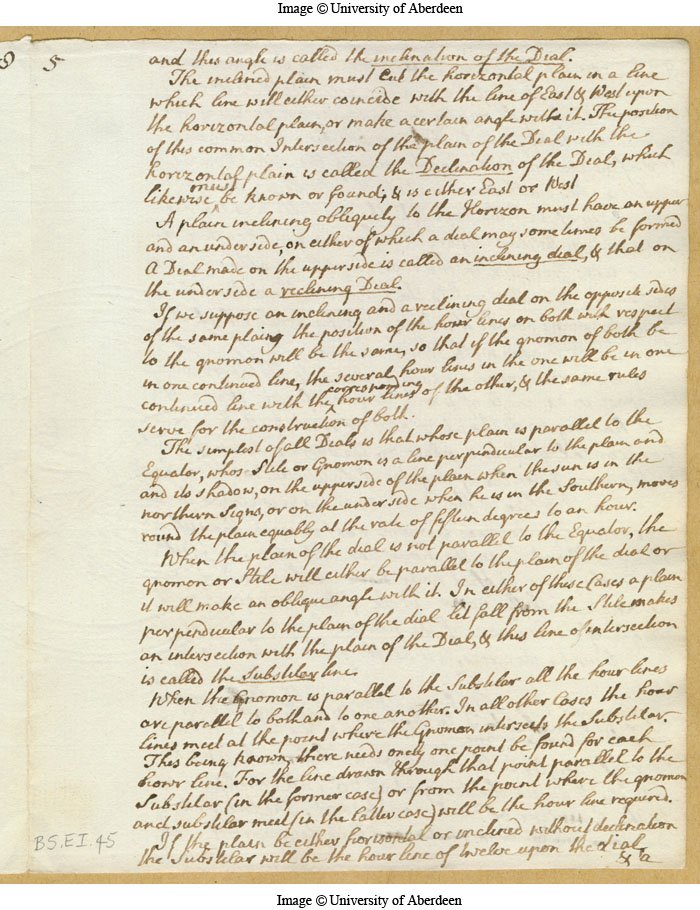 Image © University of Aberdeen
5
and this angle is called the inclination of the Dial.
The inclined plain must cut the horizontal plain in a line
which line will either coincide with the line of East & West upon
the horizontal plain, or make a certain angle with it. The position
of this common Intersection of the plain of the Dial with the
horizontal plain is called the Declination of the Dial, which
must
likewise be known or found; & is either East or West
A plain inclining obliquely to the Horizon must have an upper
and an underside, on either of which a dial may sometimes be formed
A Dial made on the upperside is called an inclining dial, & that on
the underside a reclining Dial.
If we suppose an inclining and a reclining dial on the opposite sides
of the same plain, the position of the hour lines on both with respect
to the gnomon will be the same, so that if the gnomon of both be
in one continued line, the several hour lines in the one will be in one
corresponding
continued line with the hour lines of the other, & the same rules
serve for the construction of both.
The simplest of all Dials is that whose plain is parallel to the
Equator, whos Stile or Gnomon is a line perpendicular to the plain and
and its shadow, on the upperside of the plain when the sun is in the
northern Signs, or on the under side when he is in the Southern, moves
round the plain equably at the rate of fifteen degrees to an hour.
When the plain of the dial is not parallel to the Equator, the
gnomon or Stile will either be parallel to the plain of the dial or
it will make an oblique angle with it. In either of these Cases a plain
perpendicular to the plain of the dial let fall from the Stile makes
an intersection with the plain of the Dial, & this line of intersection
is called the Substilar line.
When the Gnomon is parallel to the Substilar all the hour lines
are parallel to both and to one another. In all other Cases the hour
lines meet at the point where the Gnomon intersects the Substilar.
This being known, there needs onely one point be found for each
hour line. For the line drawn through that point parallel to the
Substilar (in the former case) or from the point where the gnomon
and substilar meet (in the latter case) will be the hour line required.
If the plain be either horizontal or inclined without declination
the Substilar will be the hour line of twelve upon the dial
& a
B5.EI.45
Image © University of Aberdeen